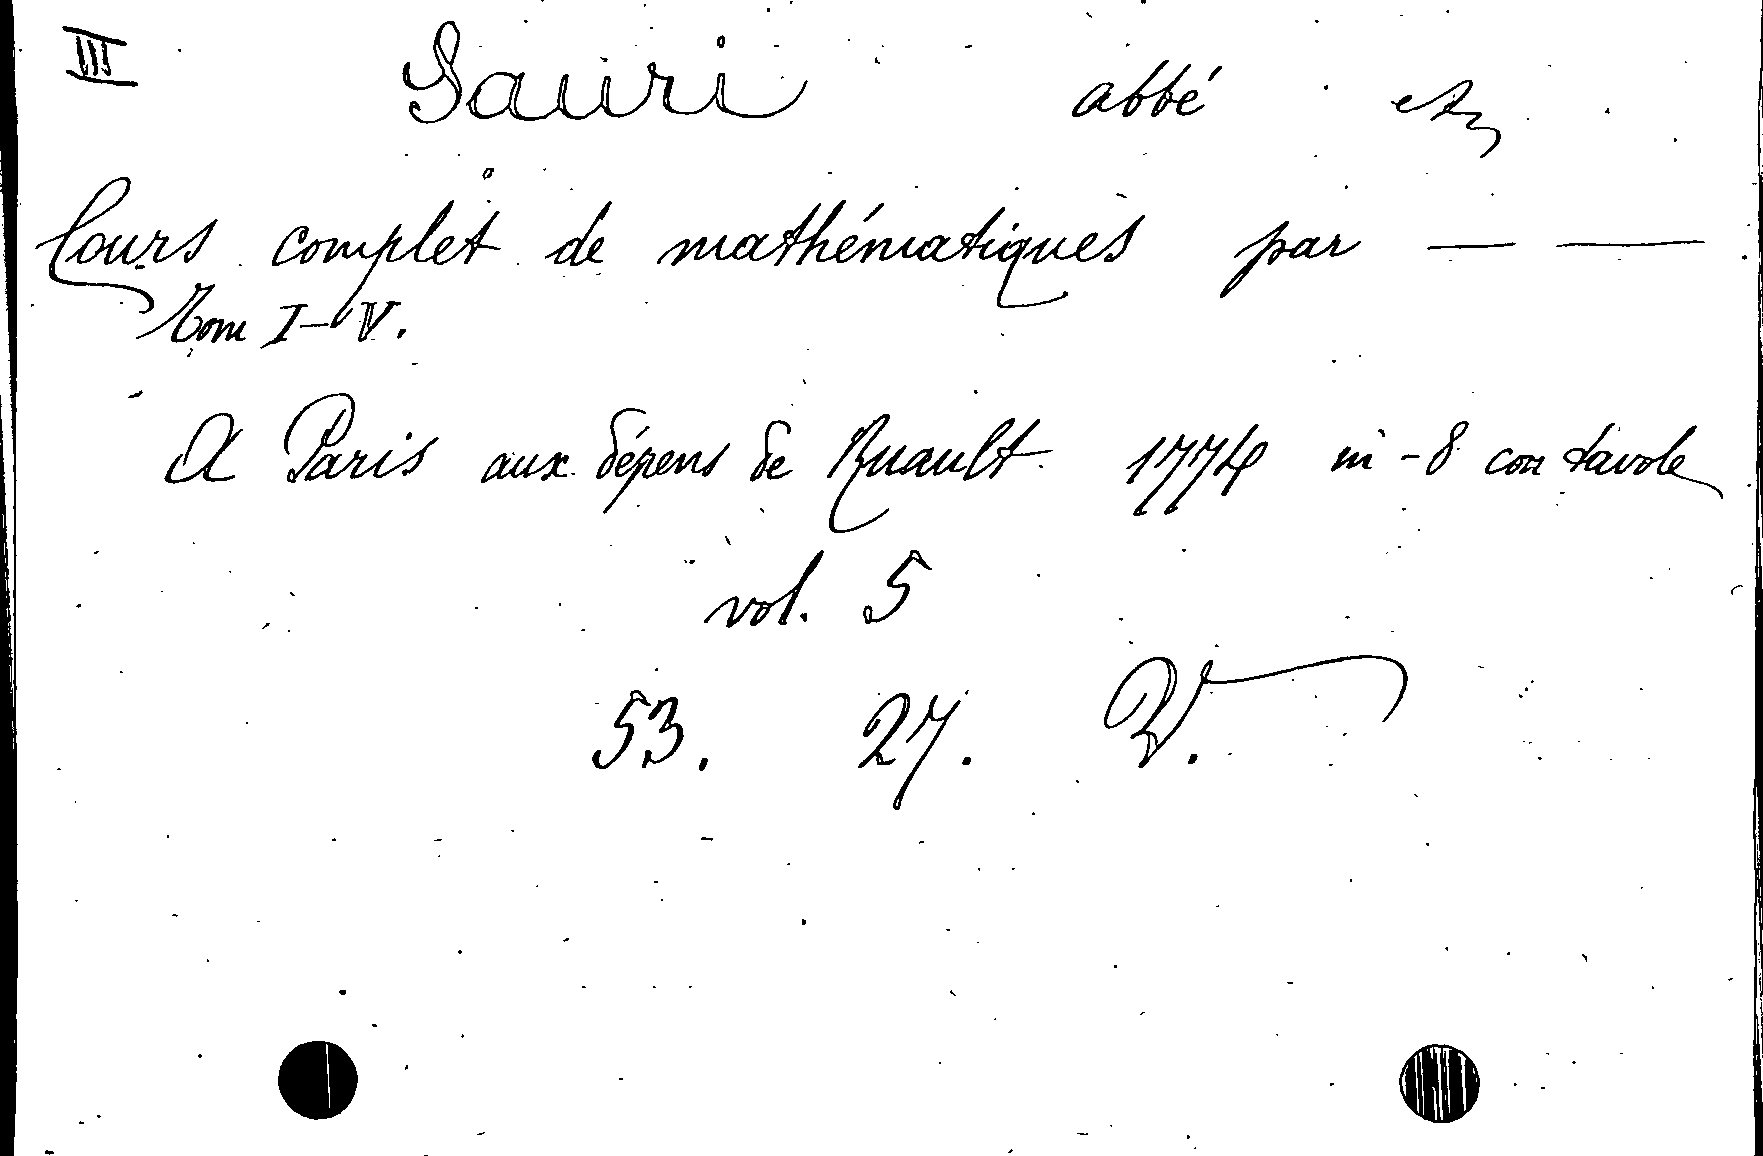 III Sauri abbé
Cours complet de mathématiques par — —
Tom I–V.
A Paris aux dépens de Ruault 1774 in-8 con tavole
vol. 5
53. 27. V.